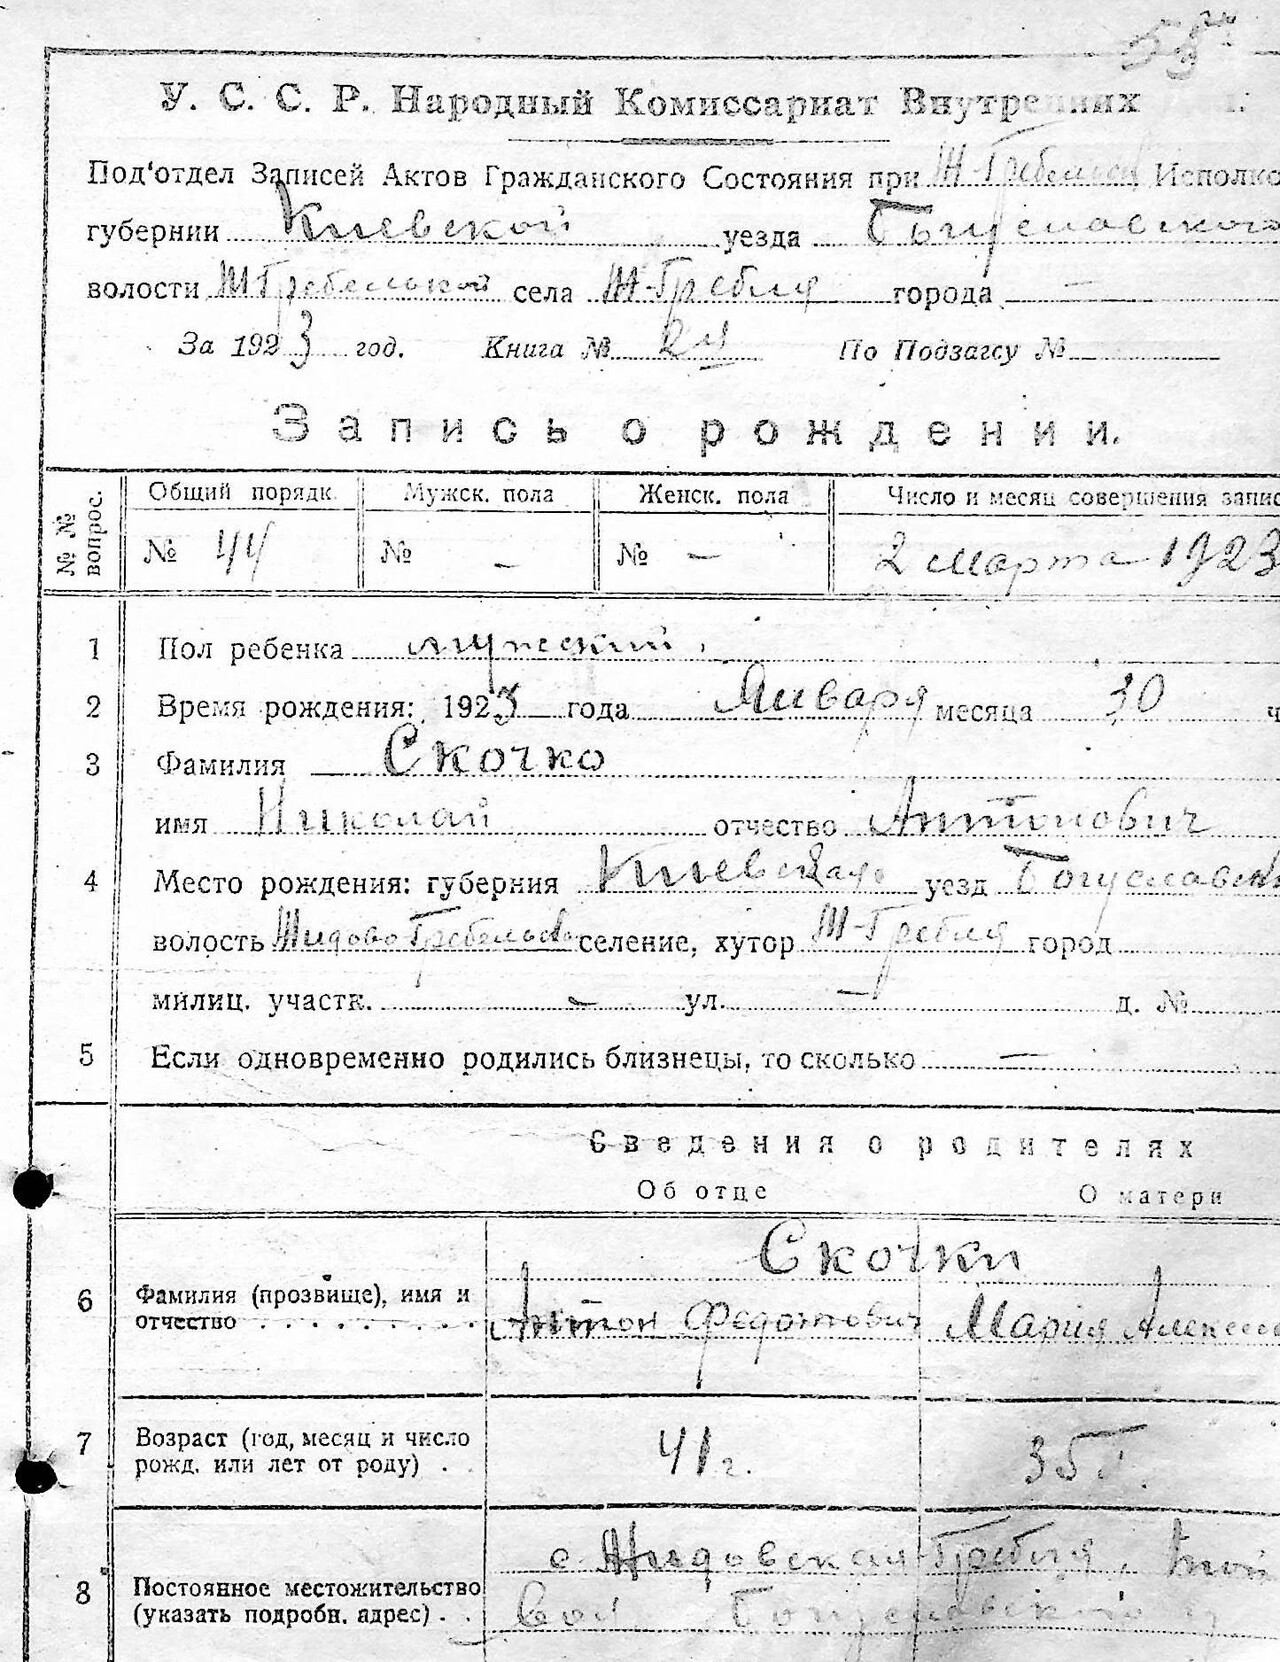 58
У. С. С. Р. Народный Комиссариат Внутренних
Под'отдел Записей Актов Гражданского Состояния при Ж-Гребельск Исполко
губернии Киевской уезда Богуславского
волости Ж Гребельской села Ж-Гребля города —
За 1923 год. Книга № 24 По Подзагсу №
Запись о рождении.
№ № вопрос. Общий порядк. Мужск. пола Женск. пола Число и месяц совершения запис
№ 44 № — № — 2 марта 1923
1 Пол ребенка мужеский
2 Время рождения: 1923 года Января месяца 30 ч
3 Фамилия Скочко
имя Николай отчество Антонович
4 Место рождения: губерния Киевская уезд Богуславск
волость Жидово Гребельско селение, хутор Ж-Гребля город
милиц. участк. — ул. — д. №
5 Если одновременно родились близнецы, то сколько —
Сведения о родителях
Об отце О матери
Скочки
6 Фамилия (прозвище), имя и
отчество Антон Федотович Мария Алексее
7 Возраст (год, месяц и число
рожд. или лет от роду) 41 г. 35 г.
с Жидовская-Гребля
8 Постоянное местожительство
(указать подробн. адрес) вол Богуславского у